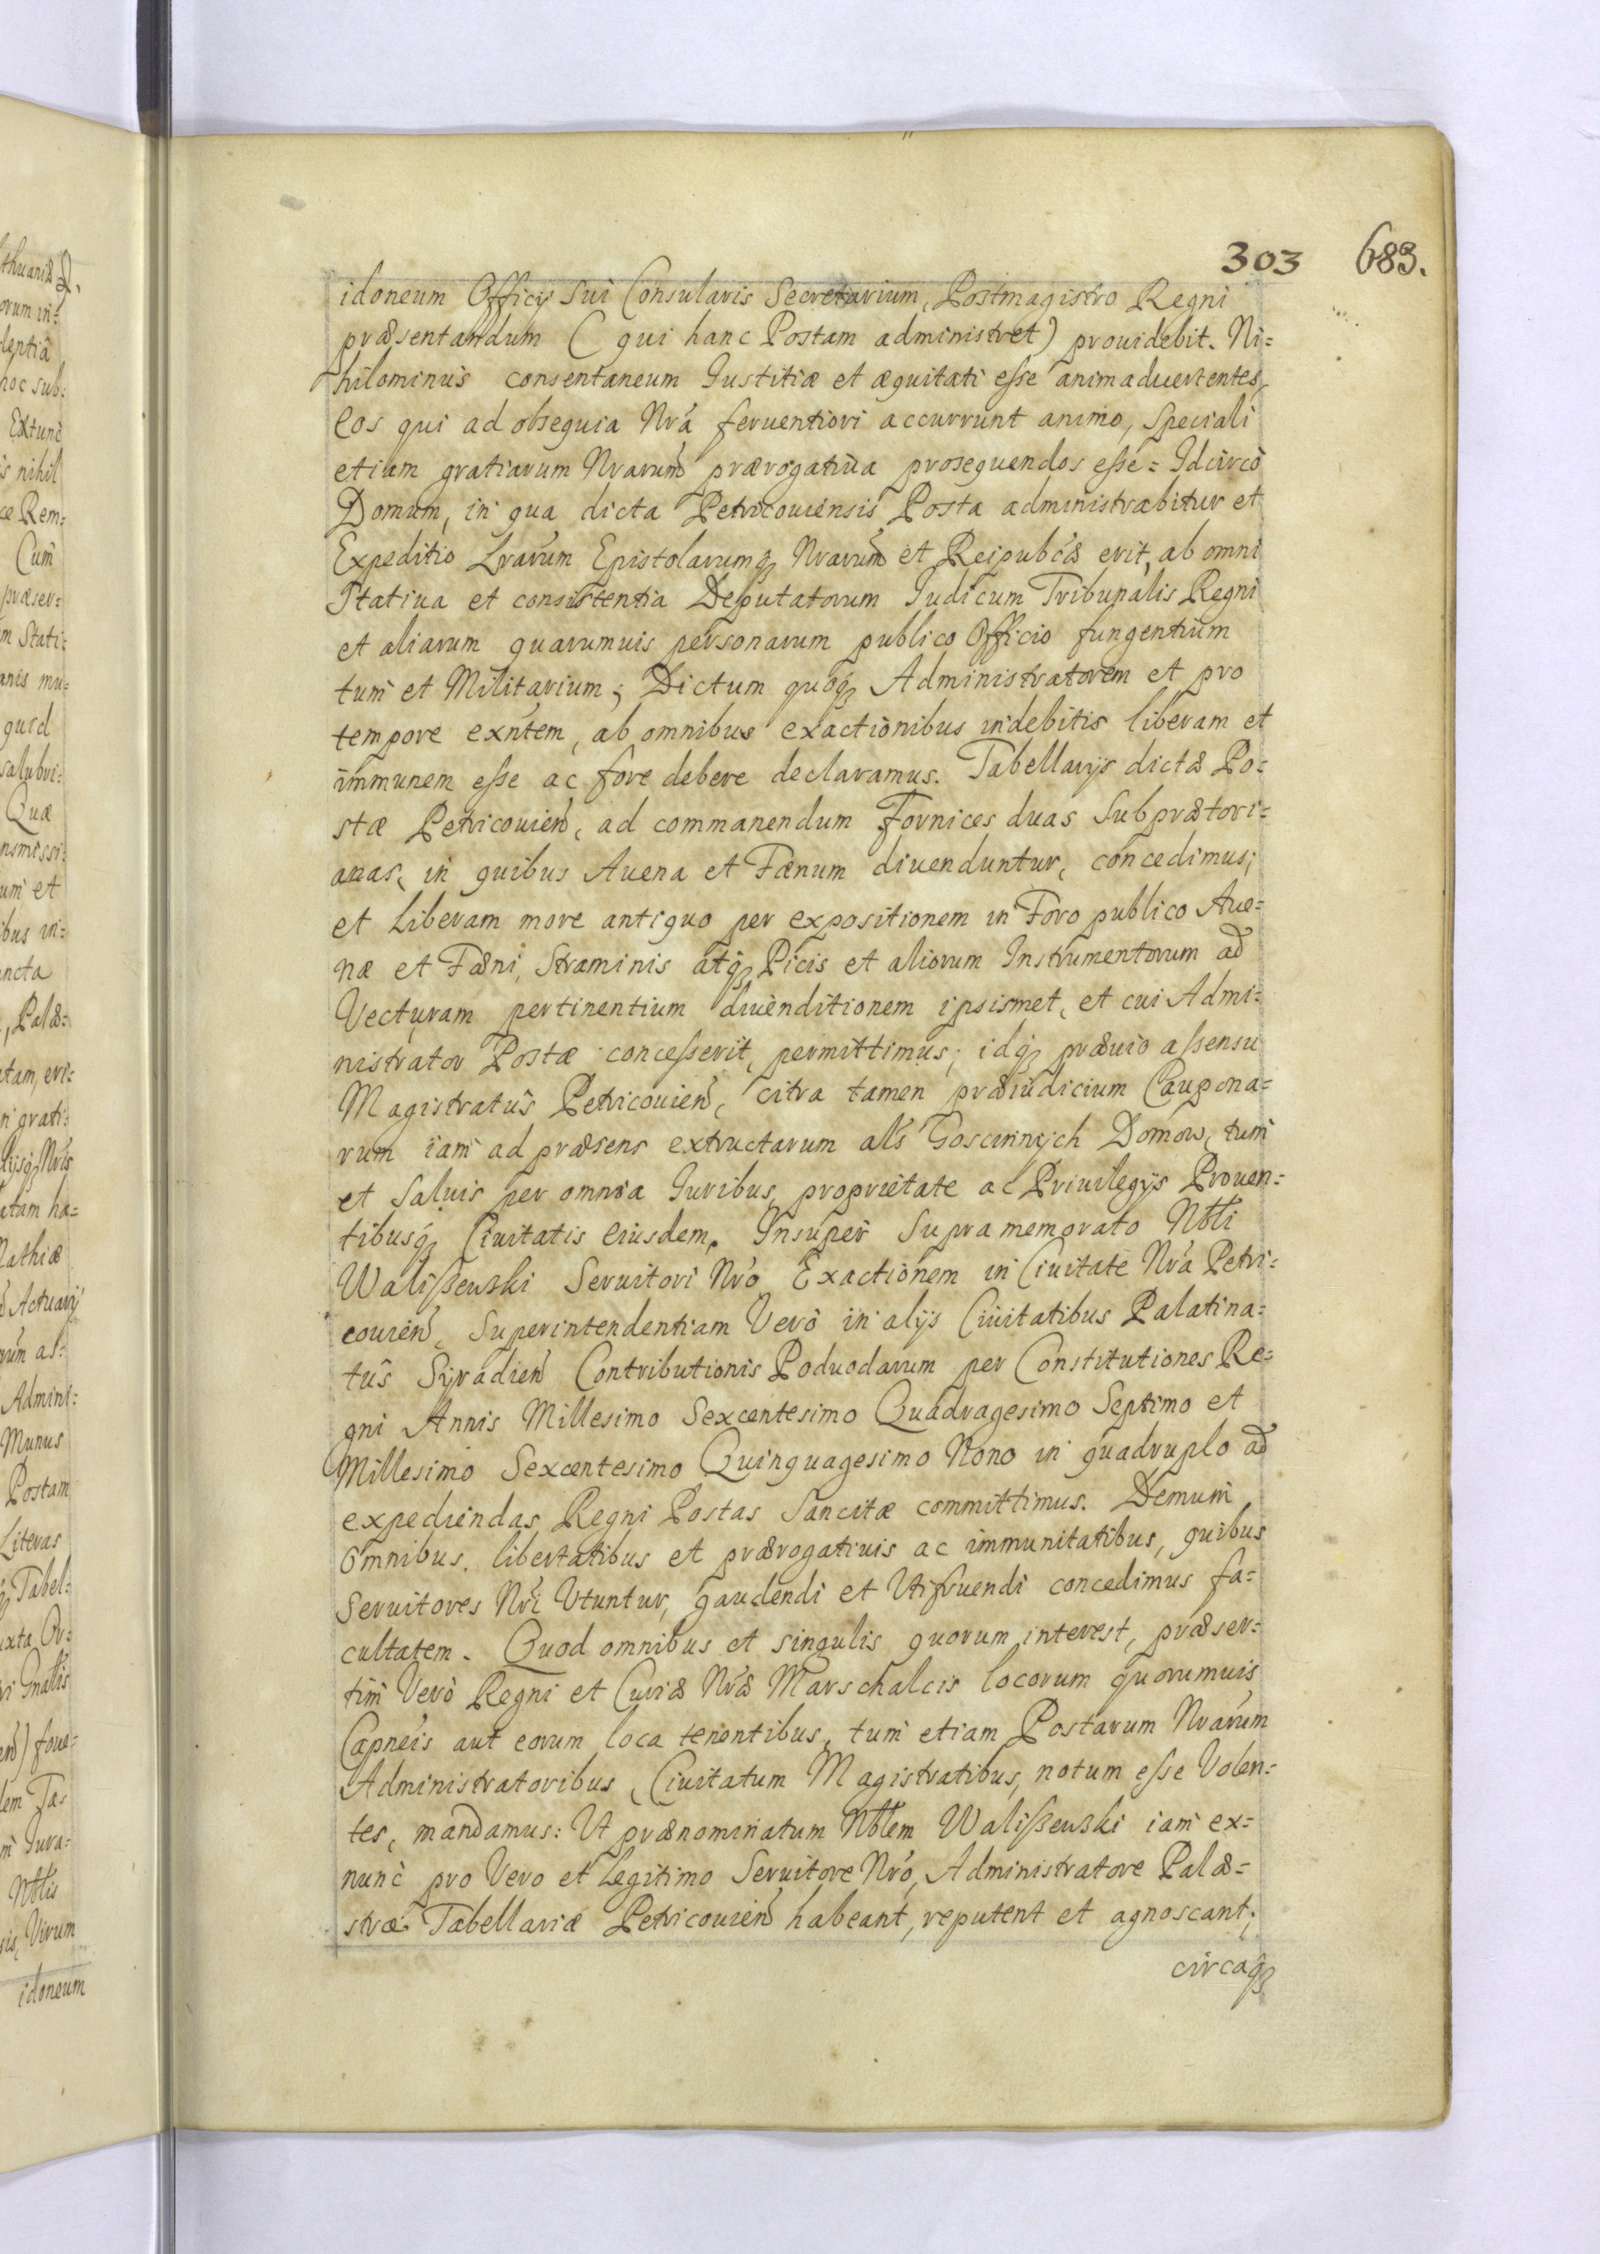 303 683.
idoneum Officij Sui Consularis Secretarium, Postmagistro Regni
præsentandum (qui hanc Postam administret) prouidebit. Ni=
hilominùs consentaneum Iustitiæ et æquitati eſse animaduertentes,
eos qui ad obsequia Nrá feruentiori accurrunt animo, Speciali
etiam gratiarum Nrarum̃ prærogatiua prosequendos eſse = Idcircò
Domum, in qua dicta Petricouiensis Posta administrabitur et
Expeditio Lrarúm Epistolarumq3 Nrarum̃ et Reipubcæ erit, ab omni
Statiua et consistentia Deputatorum Iudicum Tribunalis Regni
et aliarum quarumuis personarum publico Officio fungentium
tum et Militarium; Dictum quoq3 Administratorem et pro
tempore exńtem, ab omnibus exactionibus indebitis liberam et
immunem eſse ac fore debere declaramus. Tabellarijs dictæ Po=
stæ Petricouień, ad commanendum Fornices duas Subprætori=
anas, in quibus Auena et Fænum diuenduntur, concedimus;
et Liberam more antiquo per expositionem in Foro publico Aue=
næ et Fæni, Straminis atq3 Picis et aliorum Instrumentorum ad
Vecturam pertinentium diuenditionem ipsismet, et cui Admi=
nistrator Postæ conceſserit, permittimus; idq3 præuio aſsensu
Magistratûs Petricouień, citra tamen præiudicium Caupona=
rum iam ad præsens extructarum als Goscinnych Domow, tum
et Saluis per omnia Iuribus, proprietate ac Priuilegijs Prouen=
tibusq3 Ciuitatis eiusdem. Insuper Supra memorato Nbli
Waliſzewski Seruitori Nró Exactionem in Ciuitate Nrá Petri=
couień, Superintendentiam Verò in alijs Ciuitatibus Palatina=
tûs Syradień Contributionis Poduodarum per Constitutiones Re=
gni Annis Millesimo Sexcentesimo Quadragesimo Septimo et
Millesimo Sexcentesimo Quinquagesimo Nono in quadruplo ad
expediendas Regni Postas Sancitæ committimus. Demum
Omnibus libertatibus et prærogatiuis ac immunitatibus, quibus
Seruitores Nrí Vtuntur, gaudendi et Vtifruendi concedimus fa=
cultatem. Quod omnibus et singulis quorum interest, præser=
tim Verò Regni et Curiæ Nræ Marschalcis locorum quorumuis
Capneis aut eorum loca tenentibus, tum etiam Postarum Nrarúm
Administratoribus, Ciuitatum Magistratibus, notum eſse Volen=
tes, mandamus: Vt prænominatum Nblem Waliſzewski iam ex=
nunc pro Vero et Legitimo Seruitore Nró, Administratore Palæ=
stræ Tabellariæ Petricouień habeant, reputent et agnoscant,
circaq3